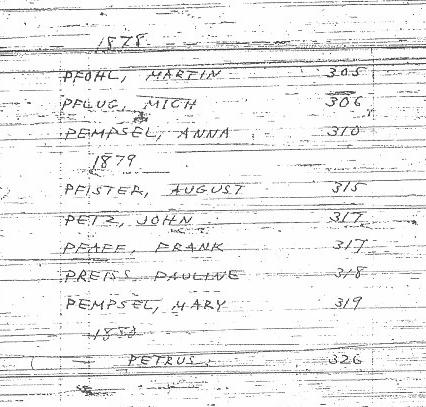 1878
PFOHL, MARTIN 305
PFLUG, MICH 306
PEMPSEL, ANNA 310
1879
PFISTER, AUGUST 315
PETZ, JOHN 317
PFAFF, FRANK 317
PREISS PAULINE 318
PEMPSEL, MARY 319
1880
PETRUS 326